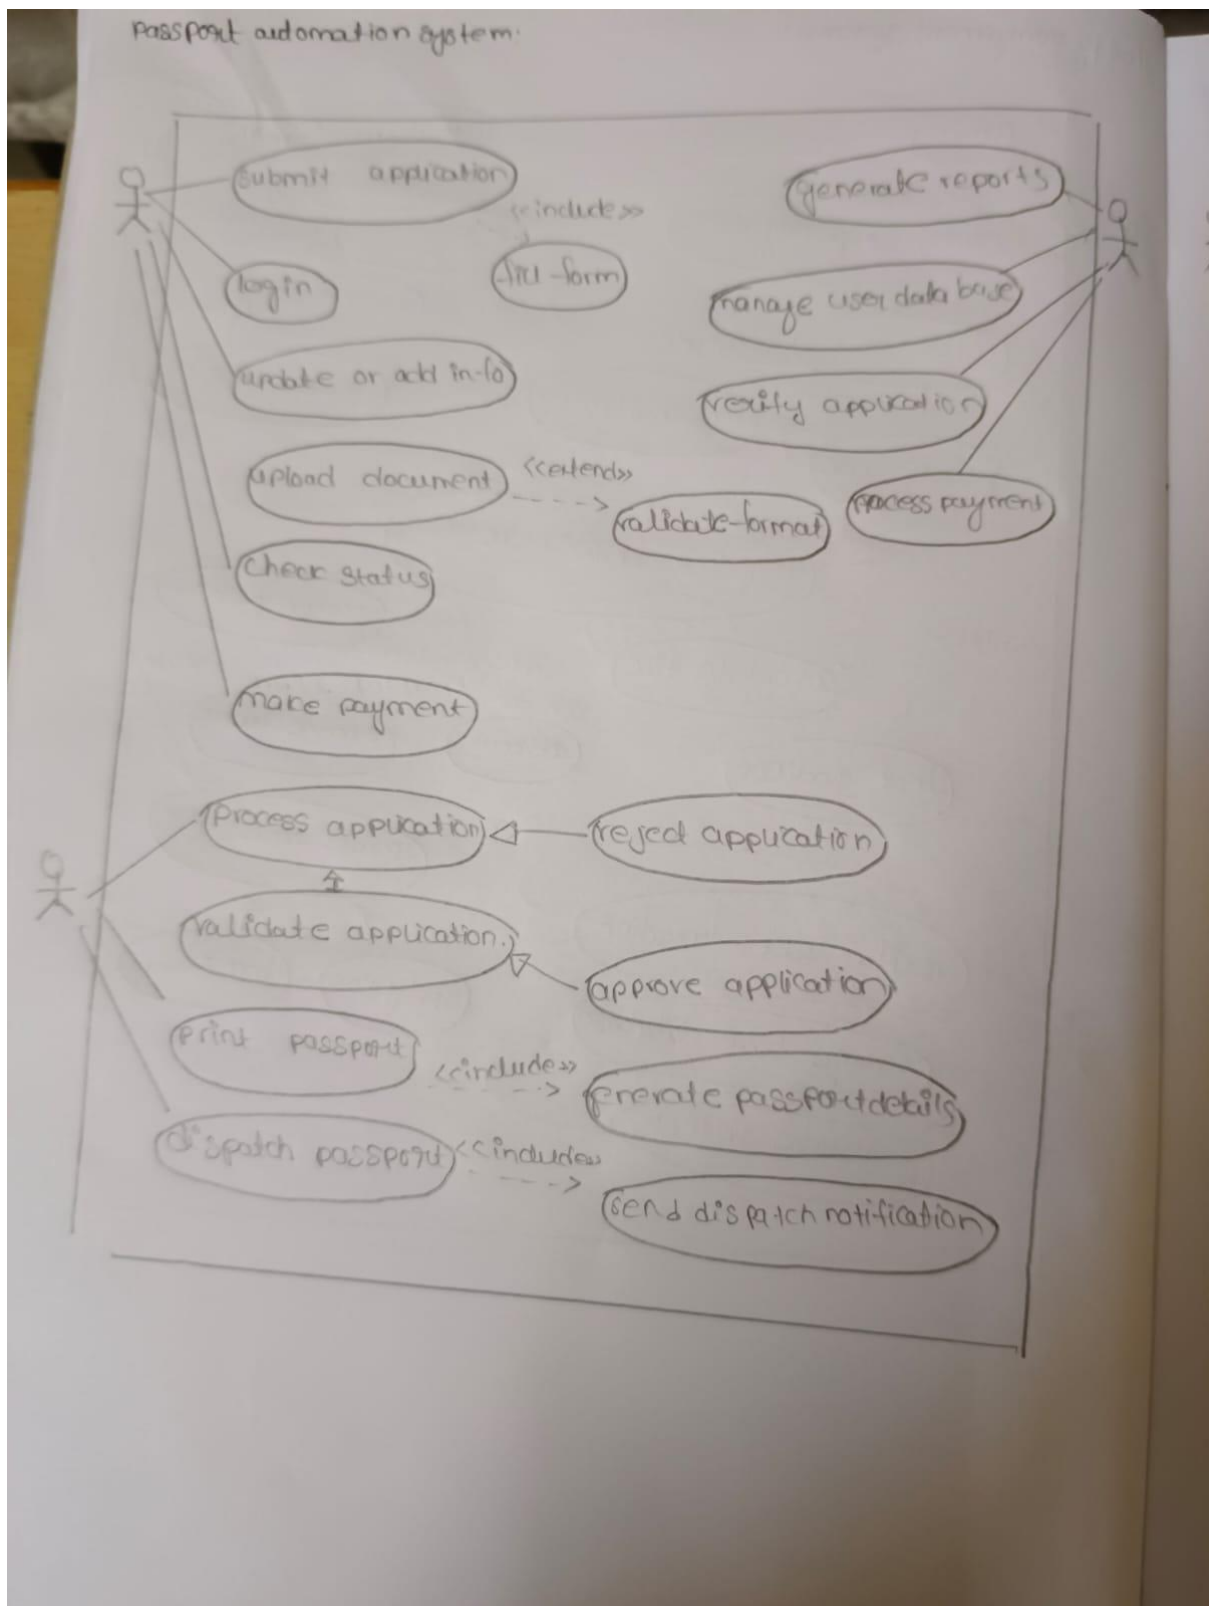 Passport automation system.
submit application
generate reports
<<include>>
login
fill form
manage user data base
update or add info
verify application
upload document
<<extend>>
validate format
process payment
check status
make payment
process application
reject application
validate application.
approve application
print passport
<<include>>
generate passport details
dispatch passport
<<include>>
send dispatch notification